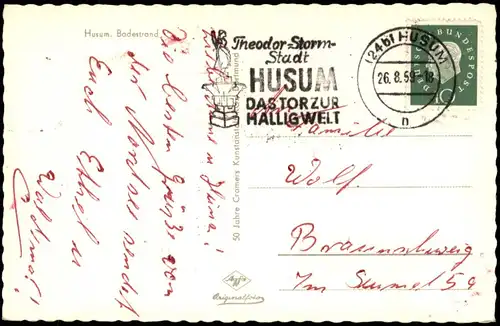 Husum, Badestrand
Theodor-Storm-
Stadt
HUSUM
DAS TOR ZUR
HALLIGWELT
(24b) HUSUM
26.8.59-18
n
DEUTSCHE
BUNDESPOST
10
50 Jahre Cramers Kunstanstalt Dortmund
Die besten Grüße von
der Nordsee sendet
Euch
Waldemar!
Familie
Wolf
Braunschweig
Im 54
Agfa
Originalfoto